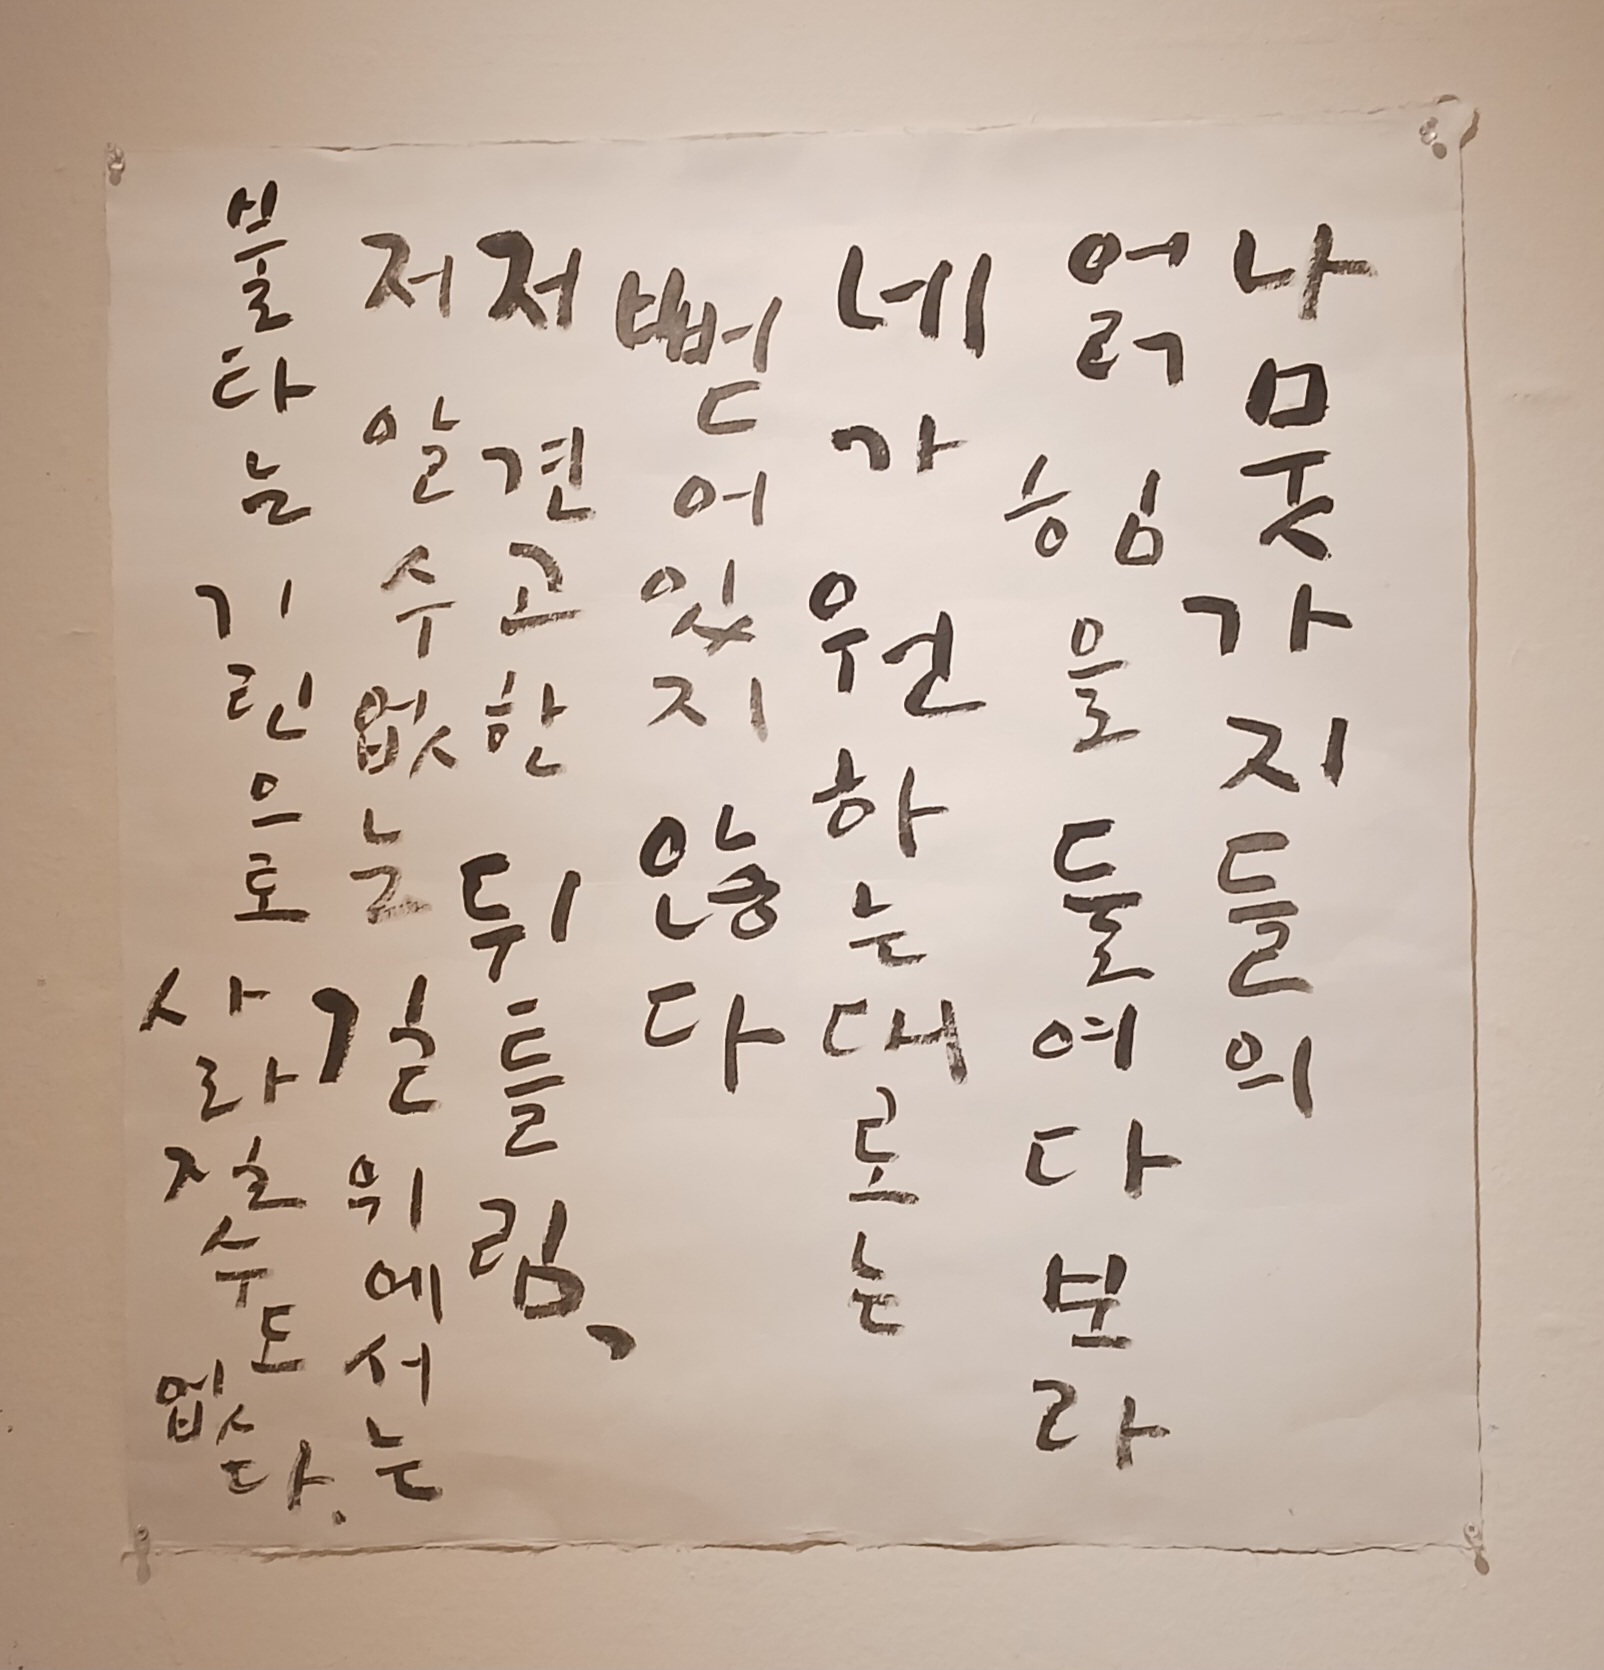 나뭇가지들의
얽힘을 들여다보라
네가 원하는대로는
뻗어있지 않다
저 견고한 뒤틀림,
저 알 수 없는 길 위에서는
불타는 기린으로 사라질 수도 없다.